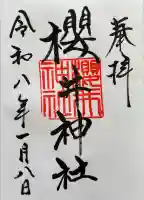 奉拝
櫻井神社
令和八年一月八日